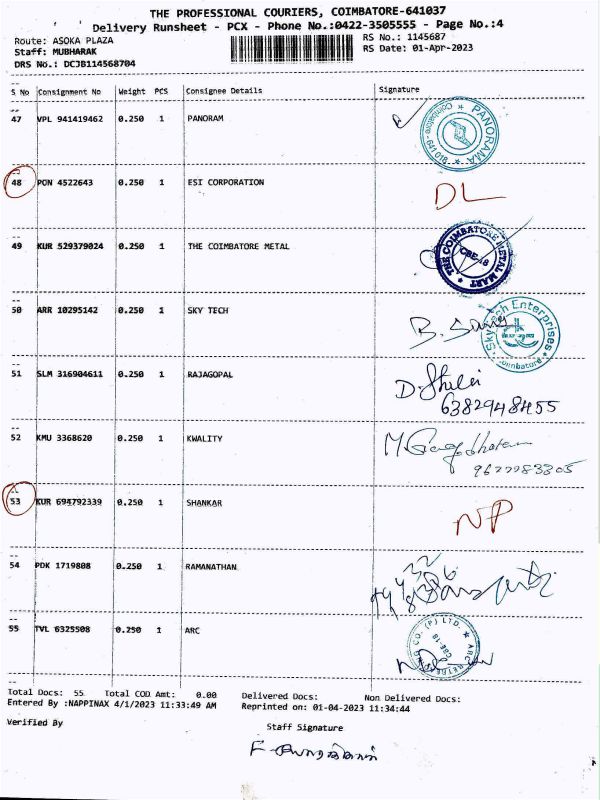 THE PROFESSIONAL COURIERS, COIMBATORE-641037
Delivery Runsheet - PCX - Phone No.:0422-3505555 - Page No.:4
Route: ASOKA PLAZA
RS No.: 1145687
Staff: MUBHARAK
RS Date: 01-Apr-2023
DRS No.: DCJB114568704
S No Consignment No Weight PCS Consignee Details Signature
47 VPL 941419462 0.250 1 PANORAM
PANORAMA Coimbatore 641 018
48 PON 4522643 0.250 1 ESI CORPORATION DL
49 KUR 529379024 0.250 1 THE COIMBATORE METAL
THE COIMBATORE METAL MART CBE-18
50 ARR 10295142 0.250 1 SKY TECH
Sky Tech Enterprises Coimbatore
51 SLM 316904611 0.250 1 RAJAGOPAL
6382948455
52 KMU 3368620 0.250 1 KWALITY
53 KUR 694792339 0.250 1 SHANKAR NP
54 PDK 1719808 0.250 1 RAMANATHAN
55 TVL 6325508 0.250 1 ARC
CO. (P) LTD. ARC CBE-18
Total Docs: 55 Total COD Amt: 0.00 Delivered Docs: Non Delivered Docs:
Entered By :NAPPINAX 4/1/2023 11:33:49 AM Reprinted on: 01-04-2023 11:34:44
Verified By Staff Signature